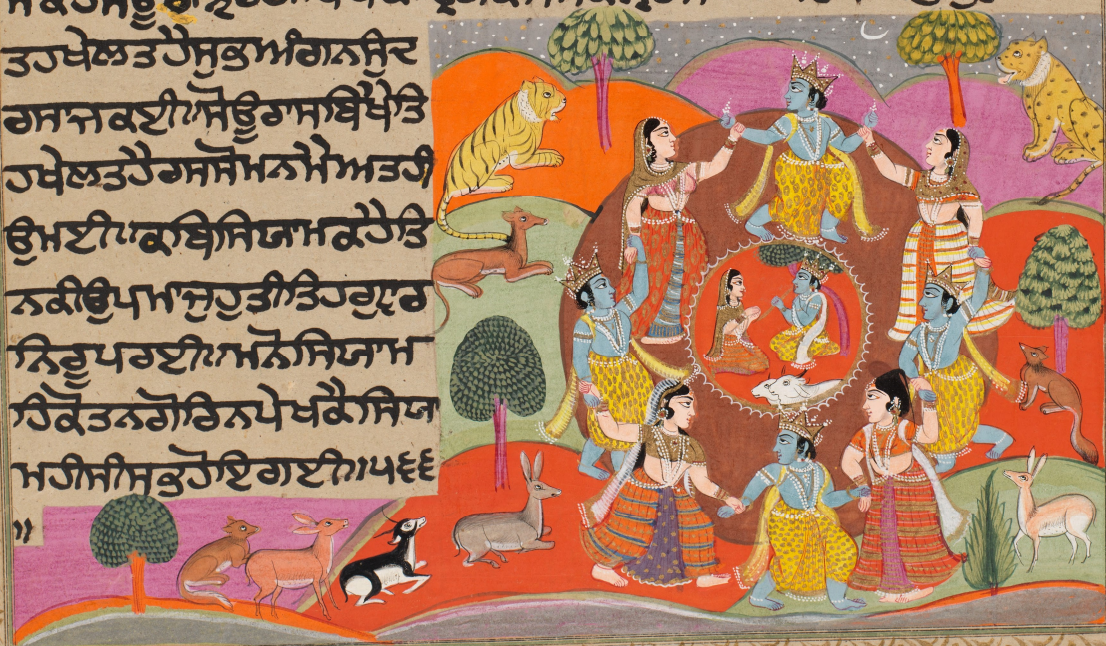 ਤਹਖੇਲਤਹੈਸੁਭਅੰਗਨਸੁੰਦ
ਰਸਾਜਕਈ॥ਸੋਊਰਾਸਬਿਖੈਤਿ
ਹਖੇਲਤਹੈਰਸਸੋਮਨਮੈਅਤਹੀ
ਉਮਈ॥ਕਬਿਸਿਯਾਮਕਹੈਤਿ
ਨਕੀਉਪਮਾਜੁਹੁਤੀਤਿਹਗੁਾਰ
ਨਿਰੂਪਰਈ॥ਮਨੋਸਿਯਾਮ
ਹਿਕੋਤਨਗੋਰਿਨਪੇਖਕੈਸਿਯਾ
ਮਹੀਸੀਸਭਹੋਇਗਈ॥੫੬੬
॥